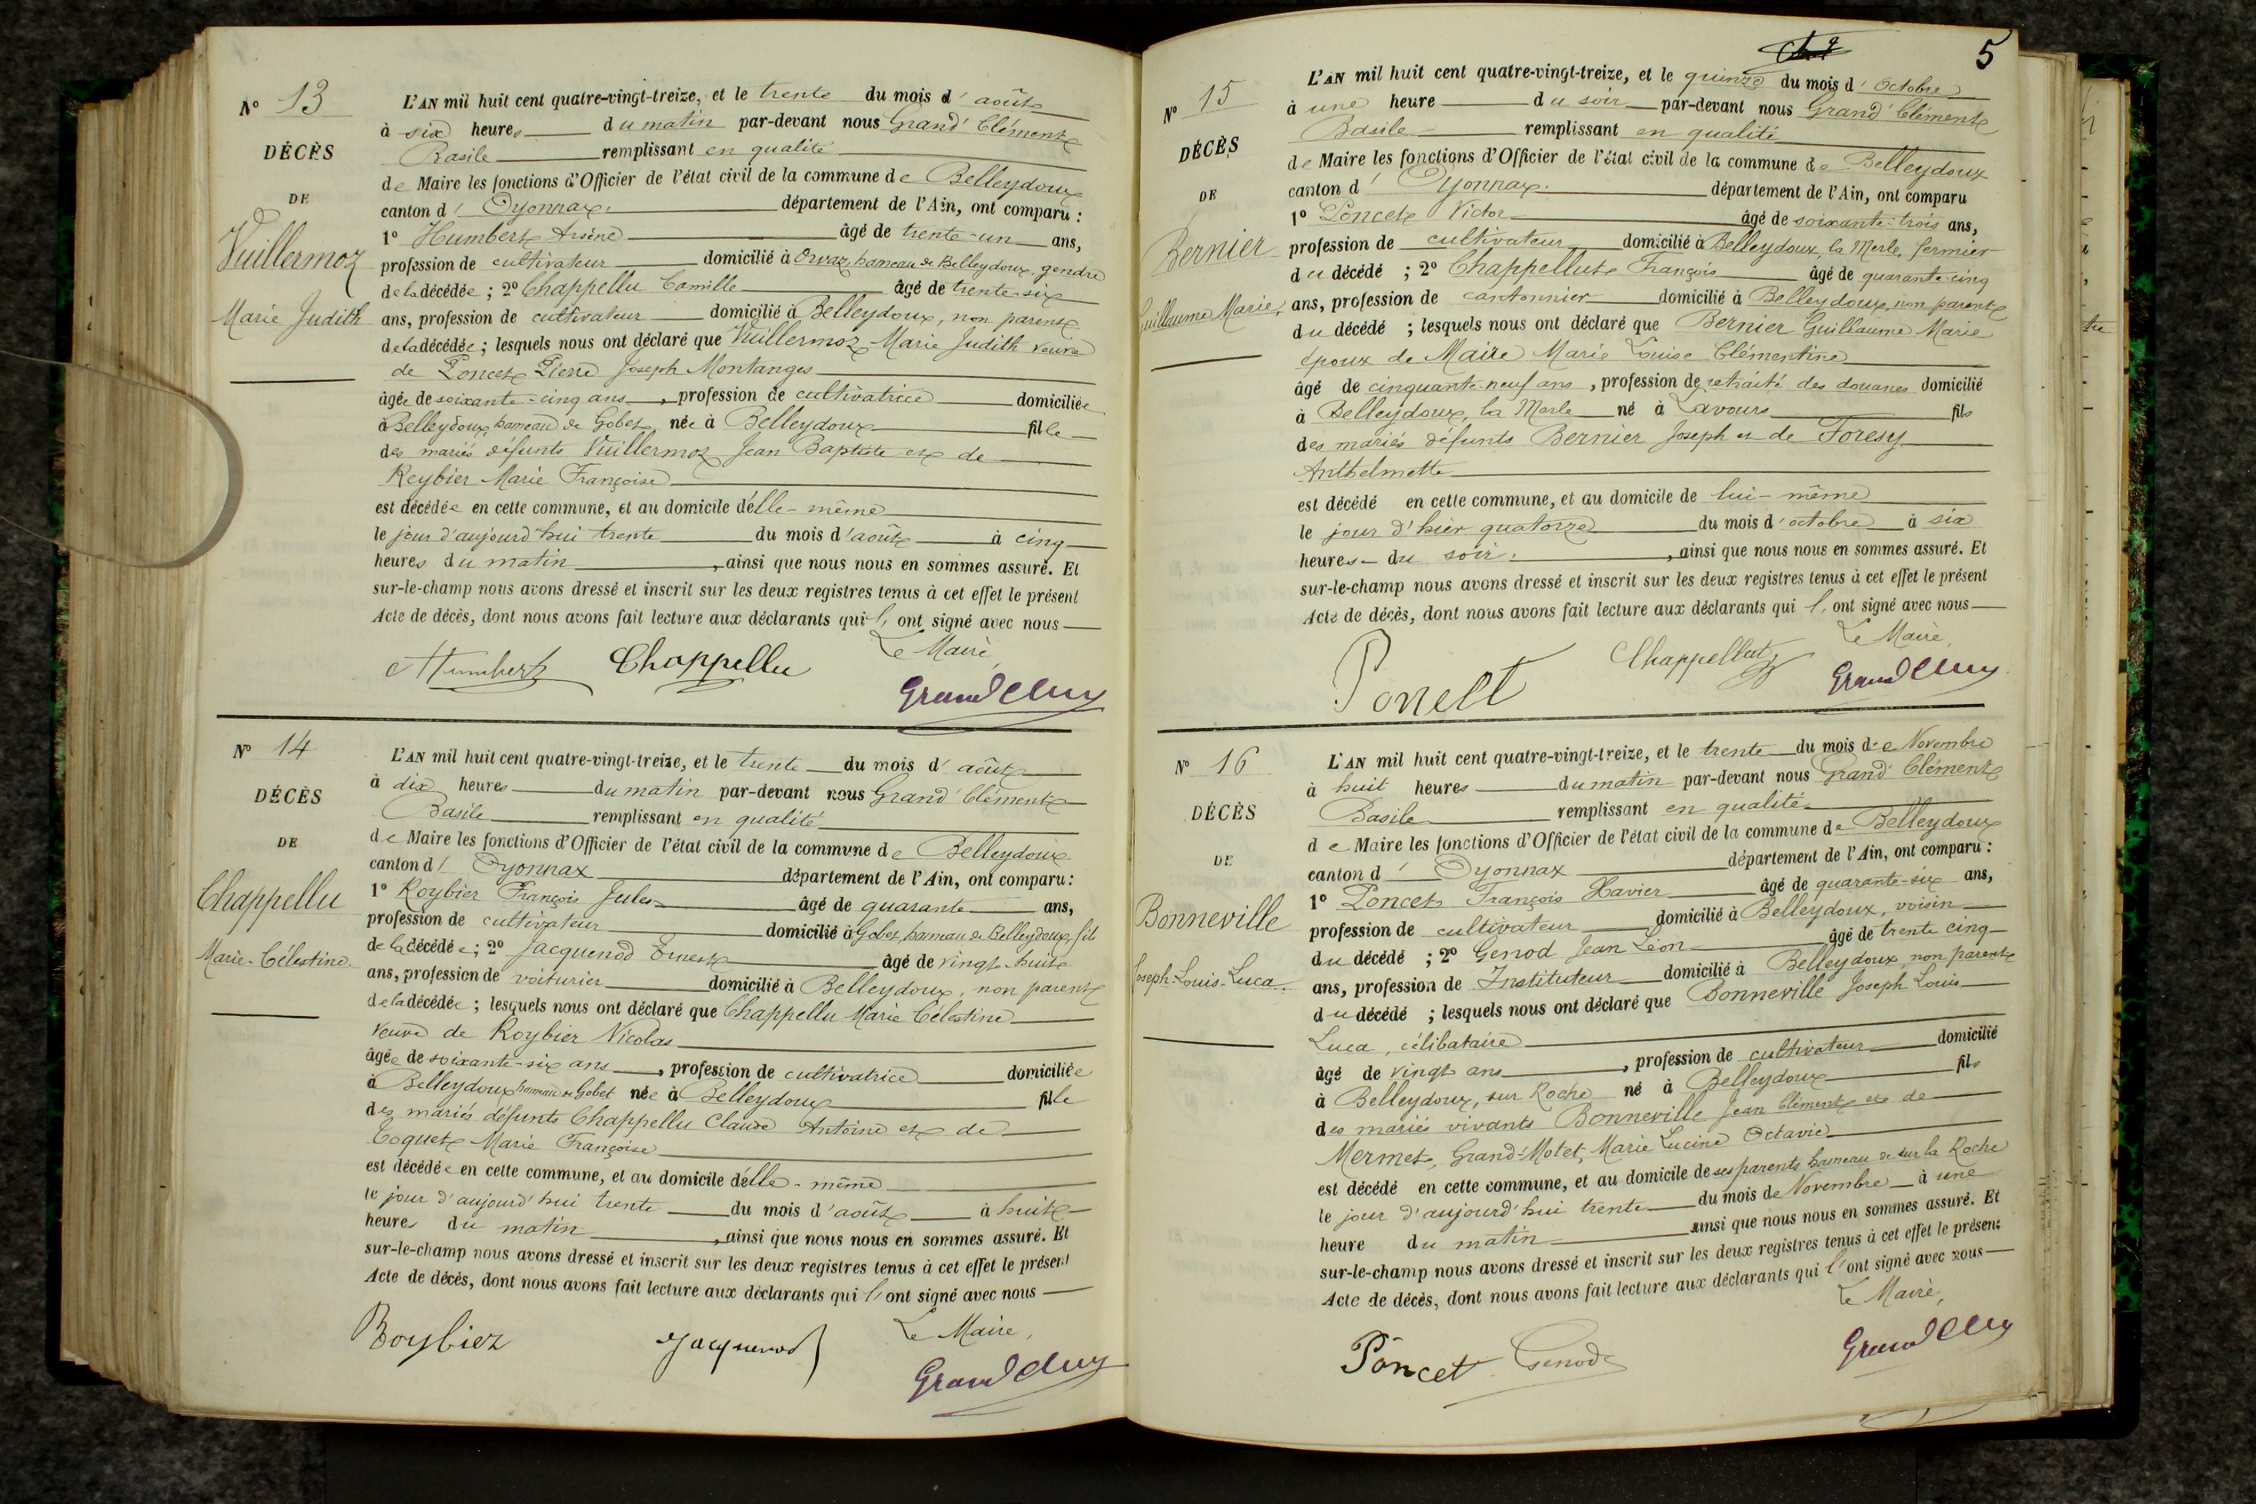 N° 13
DÉCÈS
DE
Vuillermoz
Marie Judith
L'AN mil huit cent quatre-vingt-treize, et le trente du mois d'août
à six heures du matin par-devant nous Grand Clément
Basile remplissant en qualité
de Maire les fonctions d'Officier de l'état civil de la commune de Belleydoux
canton d'Oyonnax. département de l'Ain, ont comparu :
1° Humbert Arsène âgé de trente-un ans,
profession de cultivateur domicilié à Orvaz hameau de Belleydoux, gendre
de la décédée ; 2° Chappellu Camille âgé de trente-six
ans, profession de cultivateur domicilié à Belleydoux, non parent
de la décédée ; lesquels nous ont déclaré que Vuillermoz Marie Judith veuve
de Poncet Pierre Joseph Montanges
âgée de soixante-cinq ans, profession de cultivatrice domiciliée
à Belleydoux, hameau de Gobet née à Belleydoux fille
des mariés défunts Vuillermoz Jean Baptiste et de
Reybier Marie Françoise
est décédée en cette commune, et au domicile d'elle-même
le jour d'aujourd'hui trente du mois d'août à cinq
heures du matin, ainsi que nous nous en sommes assuré. Et
sur-le-champ nous avons dressé et inscrit sur les deux registres tenus à cet effet le présent
Acte de décès, dont nous avons fait lecture aux déclarants qui l'ont signé avec nous
Le Maire,
Humbert Chappellu Grand Clny
N° 14
DÉCÈS
DE
Chappellu
Marie-Célestine
L'AN mil huit cent quatre-vingt-treize, et le trente du mois d'août
à dix heures du matin par-devant nous Grand Clément
Basile remplissant en qualité
de Maire les fonctions d'Officier de l'état civil de la commune de Belleydoux
canton d'Oyonnax département de l'Ain, ont comparu :
1° Roybier François Jules âgé de quarante ans,
profession de cultivateur domicilié à Gobet, hameau de Belleydoux, fils
de la décédée ; 2° Jacquenod Ernest âgé de vingt-huit
ans, profession de voiturier domicilié à Belleydoux, non parent
de la décédée ; lesquels nous ont déclaré que Chappellu Marie Célestine
veuve de Roybier Nicolas
âgée de soixante-six ans, profession de cultivatrice domiciliée
à Belleydoux hameau de Gobet née à Belleydoux fille
des mariés défunts Chappellu Claude Antoine et de
Coquet Marie Françoise
est décédée en cette commune, et au domicile d'elle-même
le jour d'aujourd'hui trente du mois d'août à huit
heures du matin, ainsi que nous nous en sommes assuré. Et
sur-le-champ nous avons dressé et inscrit sur les deux registres tenus à cet effet le présent
Acte de décès, dont nous avons fait lecture aux déclarants qui l'ont signé avec nous
Le Maire,
Roybier Jacquenod Grand Clny
5
N° 15
DÉCÈS
DE
Bernier
Guillaume Marie
L'AN mil huit cent quatre-vingt-treize, et le quinze du mois d'Octobre
à une heure du soir par-devant nous Grand Clément
Basile remplissant en qualité
de Maire les fonctions d'Officier de l'état civil de la commune de Belleydoux
canton d'Oyonnax. département de l'Ain, ont comparu
1° Poncet Victor âgé de soixante-trois ans,
profession de cultivateur domicilié à Belleydoux, la Merle, fermier
du décédé ; 2° Chappellut François âgé de quarante-cinq
ans, profession de cantonnier domicilié à Belleydoux, non parent
du décédé ; lesquels nous ont déclaré que Bernier Guillaume Marie
époux de Maire Marie Louise Clémentine
âgé de cinquante-neuf ans, profession de retraité des douanes domicilié
à Belleydoux, la Merle né à Lavours fils
des mariés défunts Bernier Joseph et de Foresy
Anthelmette
est décédé en cette commune, et au domicile de lui-même
le jour d'hier quatorze du mois d'octobre à six
heures du soir, ainsi que nous nous en sommes assuré. Et
sur-le-champ nous avons dressé et inscrit sur les deux registres tenus à cet effet le présent
Acte de décès, dont nous avons fait lecture aux déclarants qui l'ont signé avec nous
Le Maire,
Poncet Chappellut Grand Clny
N° 16
DÉCÈS
DE
Bonneville
Joseph-Louis-Luca.
L'AN mil huit cent quatre-vingt-treize, et le trente du mois de Novembre
à huit heures du matin par-devant nous Grand Clément
Basile remplissant en qualité
de Maire les fonctions d'Officier de l'état civil de la commune de Belleydoux
canton d'Oyonnax département de l'Ain, ont comparu :
1° Poncet François Xavier âgé de quarante-six ans,
profession de cultivateur domicilié à Belleydoux, voisin
du décédé ; 2° Genod Jean Léon âgé de trente cinq
ans, profession de Instituteur domicilié à Belleydoux, non parent
du décédé ; lesquels nous ont déclaré que Bonneville Joseph Louis
Luca, célibataire
âgé de vingt ans, profession de cultivateur domicilié
à Belleydoux, sur Roche né à Belleydoux fils
des mariés vivants Bonneville Jean Clément et de
Mermet, Grand-Motet, Marie Lucine Octavie
est décédé en cette commune, et au domicile de ses parents hameau de sur la Roche
le jour d'aujourd'hui trente du mois de Novembre à une
heure du matin ainsi que nous nous en sommes assuré. Et
sur-le-champ nous avons dressé et inscrit sur les deux registres tenus à cet effet le présent
Acte de décès, dont nous avons fait lecture aux déclarants qui l'ont signé avec nous
Le Maire,
Poncet Genod Grand Clny